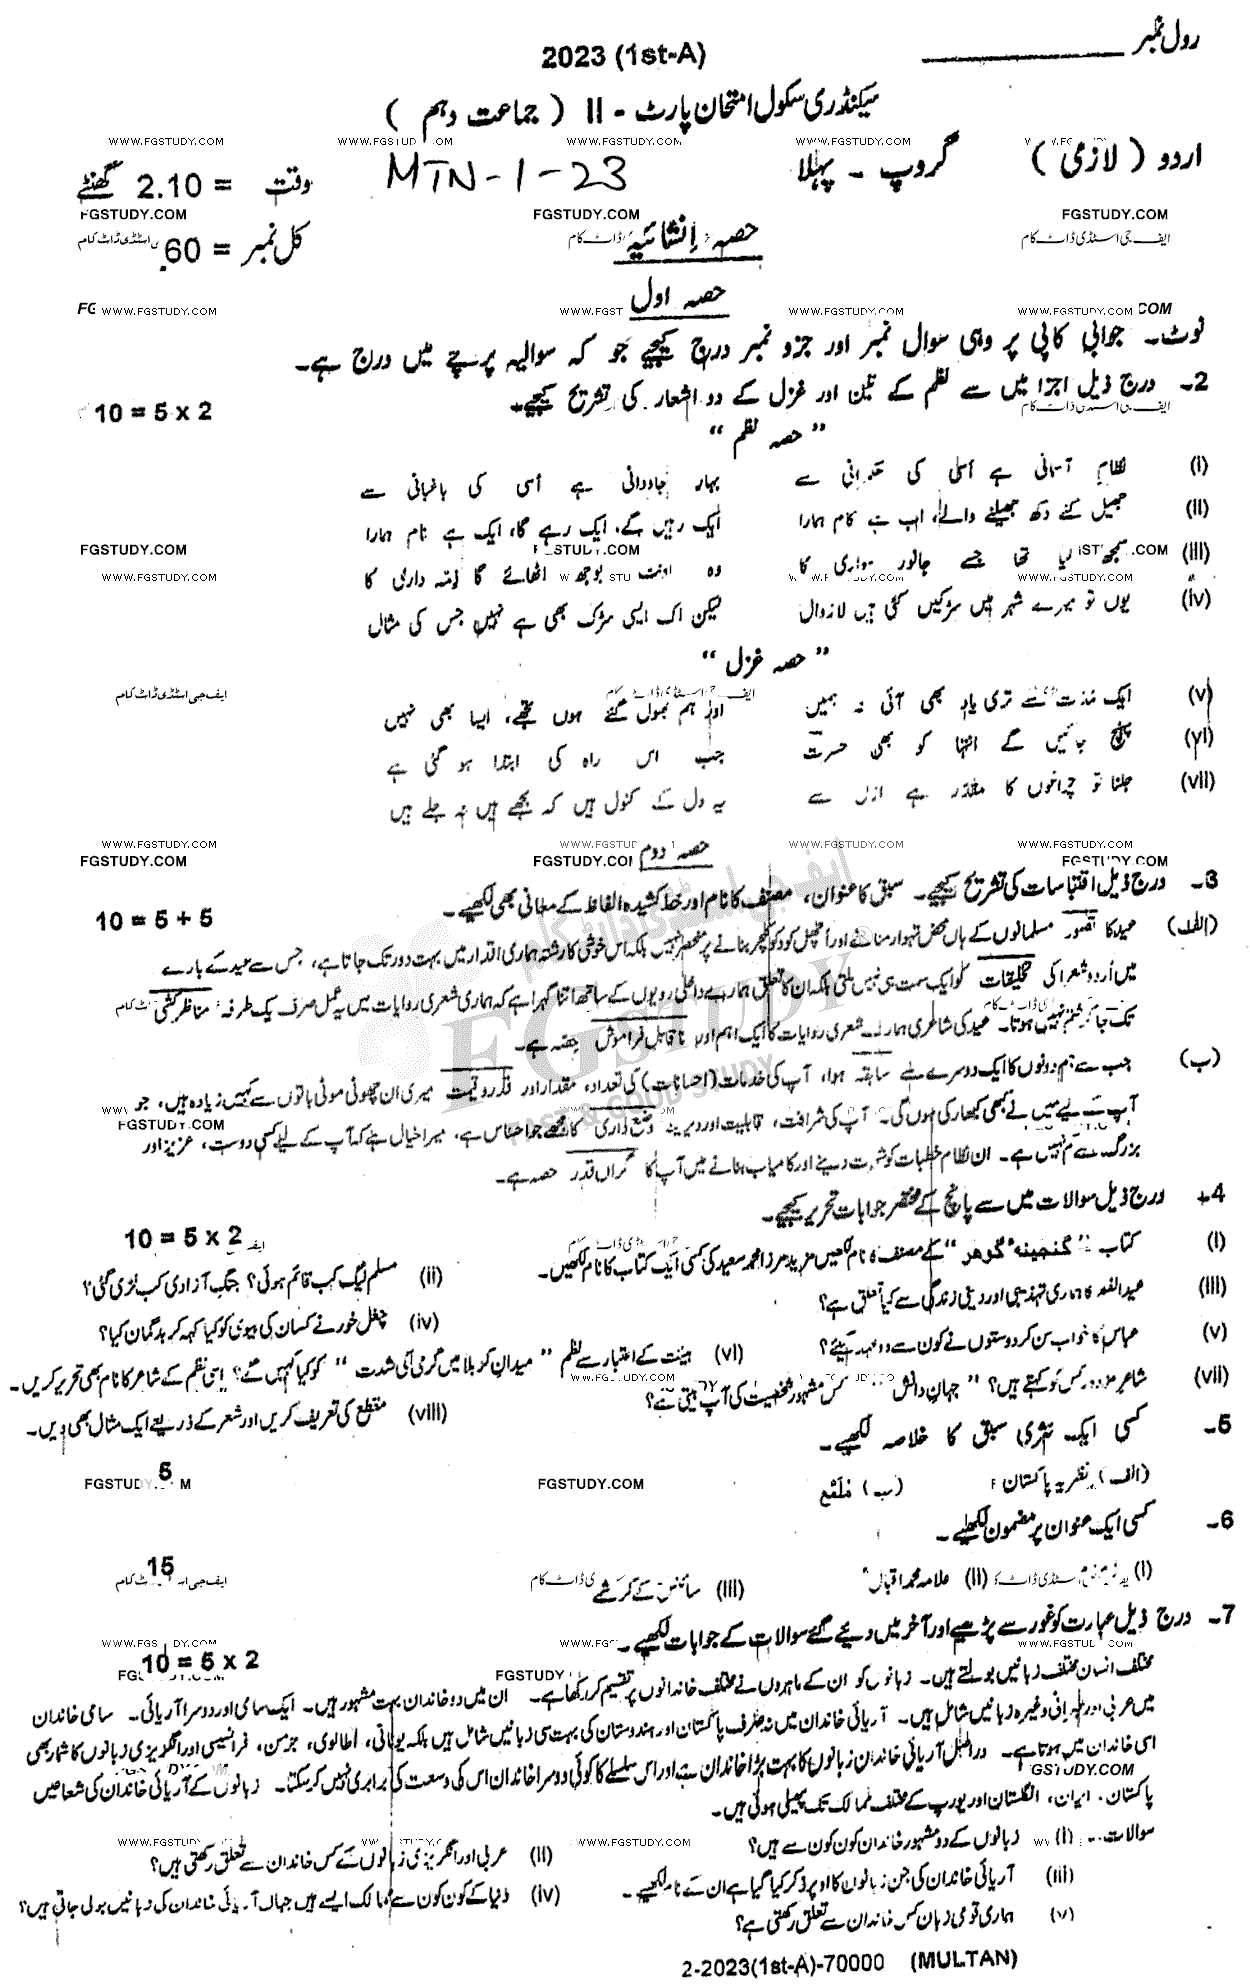 رول نمبر
2023 (1st-A)
سیکنڈری سکول امتحان پارٹ - II ( جماعت دہم )
اردو ( لازمی ) گروپ - پہلا MTN-1-23 وقت = 2.10 گھنٹے
کل نمبر = 60
حصہ اِنشائیہ
حصہ اول
نوٹ۔ جوابی کاپی پر وہی سوال نمبر اور جزو نمبر درج کیجیے جو کہ سوالیہ پرچے میں درج ہے۔
2۔ درج ذیل اجزا میں سے نظم کے تین اور غزل کے دو اشعار کی تشریح کیجیے۔ 10 = 5 x 2
" حصہ نظم "
(i) نظامِ آسمانی ہے اُسی کی حکمرانی سے بہارِ جاودانی ہے اُسی کی باغبانی سے
(ii) جھیل گئے دکھ جھیلنے والے، اب ہے کام ہمارا ایک رہیں گے، ایک رہے گا، ایک ہے نام ہمارا
(iii) سمجھ لیا تھا جسے جانور سواری کا وہ اونٹ بوجھ اٹھائے گا ذمہ داری کا
(iv) یوں تو میرے شہر میں سڑکیں کئی ہیں لازوال لیکن اک ایسی سڑک بھی ہے نہیں جس کی مثال
" حصہ غزل "
(v) ایک مُدت سے تری یاد بھی آئی نہ ہمیں اور ہم بھول گئے ہوں تجھے، ایسا بھی نہیں
(vi) پہنچ جائیں گے انتہا کو بھی حسرت جب اس راہ کی ابتدا ہو گئی ہے
(vii) جلنا تو چراغوں کا مقدر ہے ازل سے یہ دل کے کنول ہیں کہ بجھے ہیں نہ جلے ہیں
حصہ دوم
3۔ درج ذیل اقتباسات کی تشریح کیجیے۔ سبق کا عنوان، مصنف کا نام اور خط کشیدہ الفاظ کے معانی بھی لکھیے۔ 10 = 5 + 5
(الف) عید کا تصور مسلمانوں کے ہاں محض تہوار منانے اور اُچھل کود کو کلچر بنانے پر منحصر نہیں بلکہ اس خوشی کا رشتہ ہماری اقدار میں بہت دور تک جاتا ہے، جس سے عید کے بارے
میں اُردو شعرا کی تخلیقات کو ایک سمت ہی نہیں ملتی بلکہ ان کا تعلق ہمارے داخلی رویوں کے ساتھ اتنا گہرا ہے کہ ہماری شعری روایات میں یہ عمل صرف یک طرفہ مناظر کشی
تک جا کر ختم نہیں ہوتا۔ عید کی شاعری ہماری شعری روایات کا ایک اہم اور ناقابل فراموش حصہ ہے۔
(ب) جب سے ہم دونوں کا ایک دوسرے سے سابقہ ہوا، آپ کی خدمات (احسانات) کی تعداد، مقدار اور قدر و قیمت میری ان چھوٹی موٹی باتوں سے کہیں زیادہ ہیں، جو
آپ کے لیے میں نے کبھی کبھار کی ہوں گی۔ آپ کی شرافت، قابلیت اور دیرینہ وضع داری کا مجھے جو احساس ہے، میرا خیال ہے کہ آپ کے لیے کسی دوست، عزیز اور
بزرگ سے کم نہیں ہے۔ ان نظام خطبات کو شہرت دینے اور کامیاب بنانے میں آپ کا گراں قدر حصہ ہے۔
4۔ درج ذیل سوالات میں سے پانچ کے مختصر جوابات تحریر کیجیے۔ 10 = 5 x 2
(i) کتاب " گنجینہ گوہر " کے مصنف کا نام لکھیں مزید مرزا محمد سعید کی کسی ایک کتاب کا نام لکھیں۔
(ii) مسلم لیگ کب قائم ہوئی؟ جنگِ آزادی کب لڑی گئی؟
(iii) عید الفطر کا ہماری تہذیبی اور دینی زندگی سے کیا تعلق ہے؟
(iv) چغل خور نے کسان کی بیوی کو کیا کہہ کر بدگمان کیا؟
(v) عباس کا خواب سن کر دوستوں نے کون سے دو
(vi) ہیئت کے اعتبار سے نظم " میدانِ کربلا میں گرمی کی شدت " کو کیا کہیں گے؟ اِس نظم کے شاعر کا نام بھی تحریر کریں۔
(vii) شاعرِ مزدور کس کو کہتے ہیں؟ " جہانِ دانش " کس مشہور شخصیت کی آپ بیتی ہے؟
(viii) مقطع کی تعریف کریں اور شعر کے ذریعے ایک مثال بھی دیں۔
5۔ کسی ایک نثری سبق کا خلاصہ لکھیے۔ 5
(الف) نظریہ پاکستان (ب) مُلَمَّع
6۔ کسی ایک عنوان پر مضمون لکھیے۔ 15
(i)
(ii) علامہ محمد اقبالؒ
(iii) سائنس کے کرشمے
7۔ درج ذیل عبارت کو غور سے پڑھیے اور آخر میں دیئے گئے سوالات کے جوابات لکھیے۔ 10 = 5 x 2
مختلف انسان مختلف زبانیں بولتے ہیں۔ زبانوں کو ان کے ماہروں نے مختلف خاندانوں پر تقسیم کر رکھا ہے۔ ان میں دو خاندان بہت مشہور ہیں۔ ایک سامی اور دوسرا آریائی۔ سامی خاندان
میں عربی اور عبرانی وغیرہ زبانیں شامل ہیں۔ آریائی خاندان میں نہ صرف پاکستان اور ہندوستان کی بہت سی زبانیں شامل ہیں بلکہ یونانی، اطالوی، جرمن، فرانسیسی اور انگریزی زبانوں کا شمار بھی
اسی خاندان میں ہوتا ہے۔ دراصل آریائی خاندان زبانوں کا بہت بڑا خاندان ہے اور اس سلسلے کا کوئی دوسرا خاندان اس کی وسعت کی برابری نہیں کر سکتا۔ زبانوں کے آریائی خاندان کی شعاعیں
پاکستان، ایران، انگلستان اور یورپ کے مختلف ممالک تک پھیلی ہوئی ہیں۔
سوالات:۔ (i) زبانوں کے دو مشہور خاندان کون کون سے ہیں؟
(ii) عربی اور انگریزی زبانوں کے کس خاندان سے تعلق رکھتی ہیں؟
(iii) آریائی خاندان کی جن زبانوں کا اوپر ذکر کیا گیا ہے ان کے نام لکھیے۔
(iv) دنیا کے کون کون سے ممالک ایسے ہیں جہاں آریائی خاندان کی زبانیں بولی جاتی ہیں؟
(v) ہماری قومی زبان کس خاندان سے تعلق رکھتی ہے؟
2-2023(1st-A)-70000 (MULTAN)